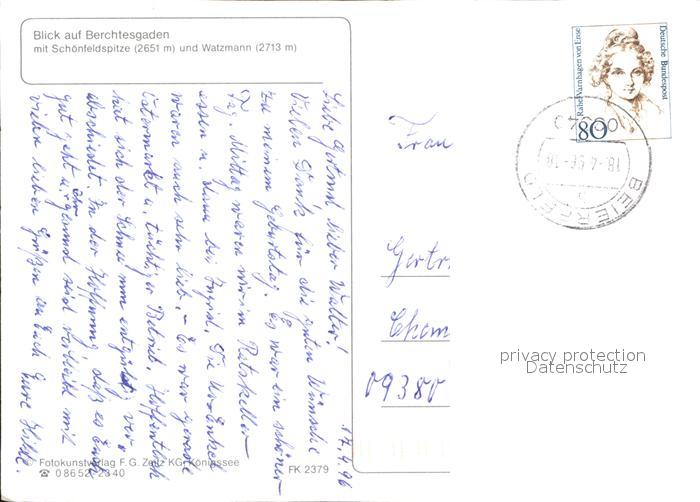 Blick auf Berchtesgaden
mit Schönfeldspitze (2651 m) und Watzmann (2713 m)
17.4.96
Liebe Gertrud, lieber Walter!
Vielen Dank für die guten Wünsche
zu meinem Geburtstag. Es war ein schöner
Tag. Mittag waren wir im Ratskeller
essen u. dann bei Ingrid. Die Urenkel
waren auch sehr lieb. – Es war gerade
Ostermarkt u. tüchtiger Betrieb. Hoffentlich
hat sich der Schnee nun entgültig ver-
abschiedet. In der Hoffnung, daß es Euch
gut geht u. Ihr gesund seid verbleibt mit
vielen lieben Grüßen an Euch Eure Hilde.
© Fotokunstverlag F. G. Zeitz KG, Königssee
☎ 08652/2340
FK 2379
Rahel Varnhagen von Ense
Deutsche Bundespost
80
BEIERFELD
18.-4.96-18
Frau
Gertr
Chem
09380
privacy protection
Datenschutz